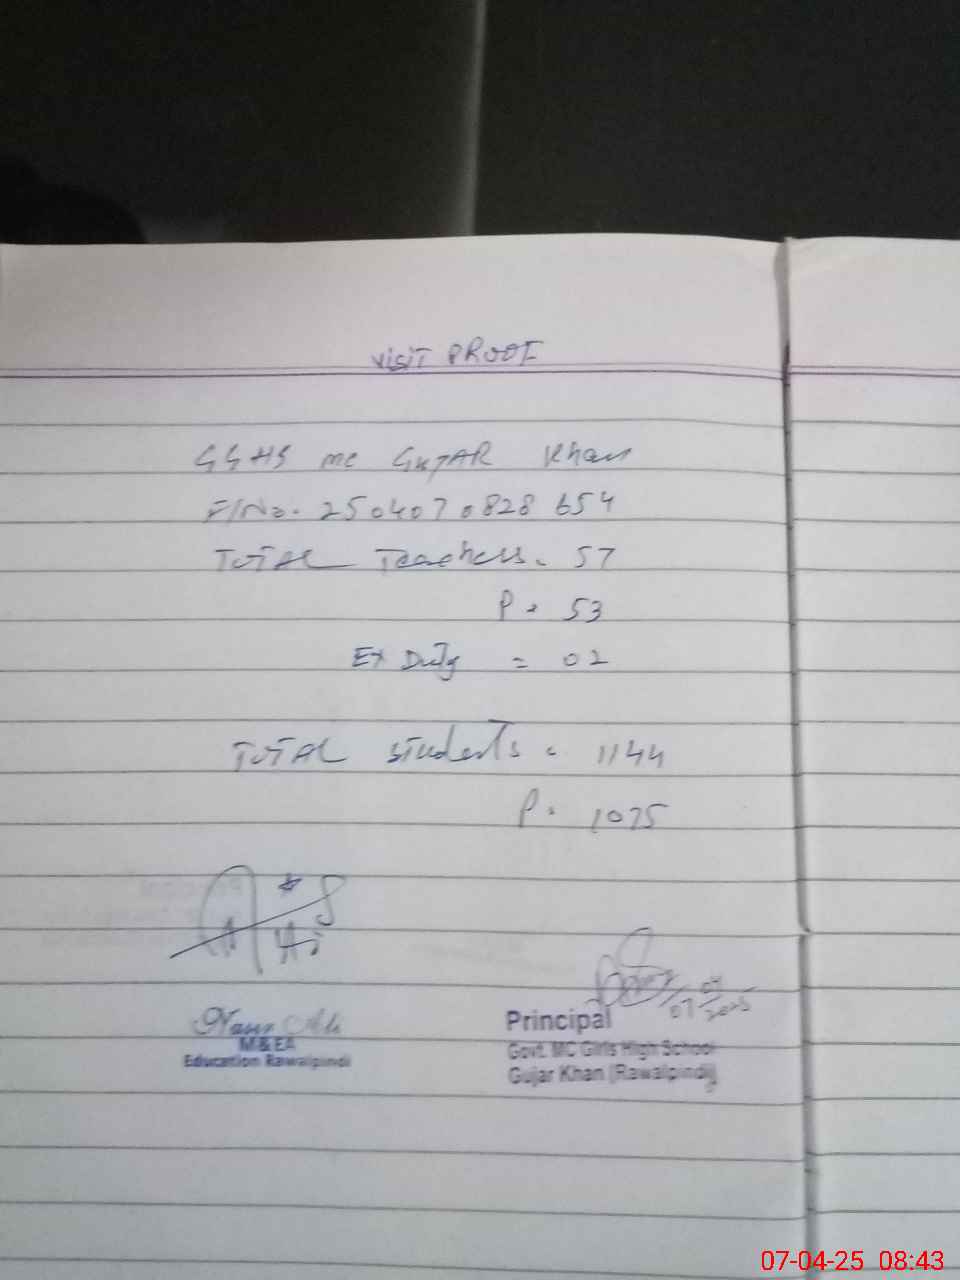 Visit PROOF
GGHS mc GUJAR Khan
F/No. 2504070828654
TOTAL Teachers. 57
P = 53
Ex Duty = 02
TOTAL students = 1144
P = 1075
07/04/2025
Nasir Ali
M&EA
Education Rawalpindi
Principal
Govt. MC Girls High School
Gujar Khan (Rawalpindi)
07-04-25 08:43